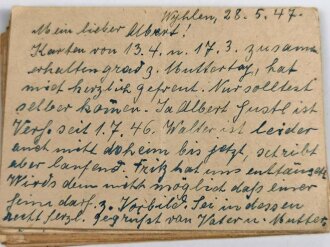 Wyhlen, 28.5.47.
Mein lieber Albert!
Karten von 13.4. u. 17.3. zusamm
erhalten grad z. Muttertag, hat
mich herzlich gefreut. Nur solltest
selber kommen. Ja Albert Gustl ist
Verh. seit 1.7.46. Walter ist leider
auch nicht daheim bis jetzt, schreibt
aber laufend. Fritz hat uns enttäuscht
Wirds denn nicht möglich daß einer
heim darf. z. Vorbild. Sei in dessen
recht herzl. gegrüßt von Vater u. Mutter